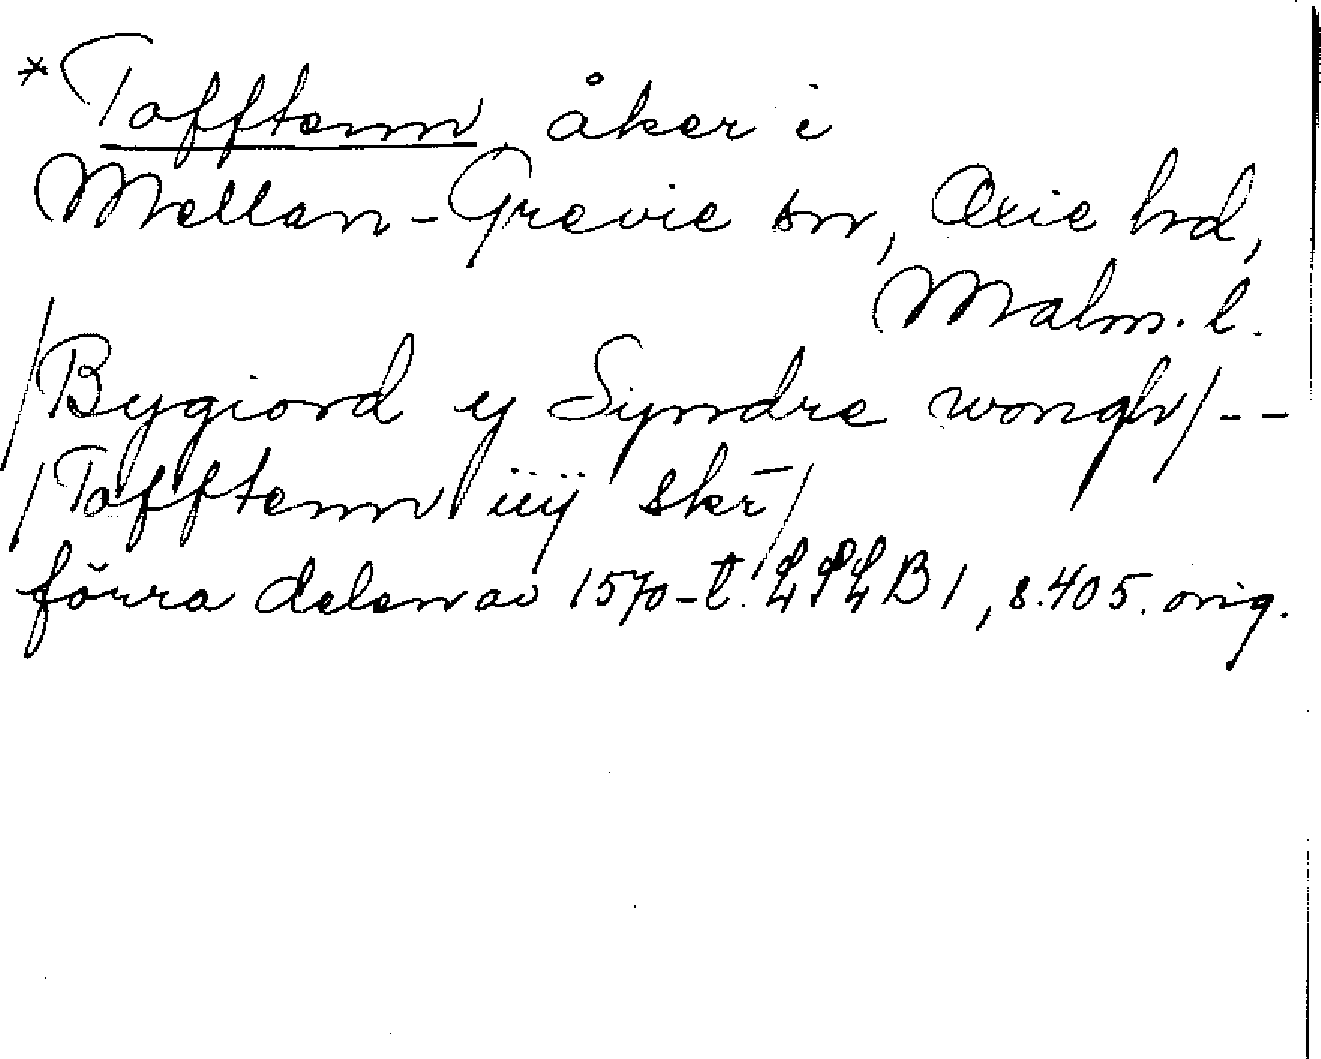 *Tafftenn, åker i
Mellan-Grevie sn, Oxie hd,
Malm. l.
/Bygiord y Syndre wongh/--
/Tafftenn iiij skr̄/
förra delen av 1570-t. LPL B1, s. 405. orig.